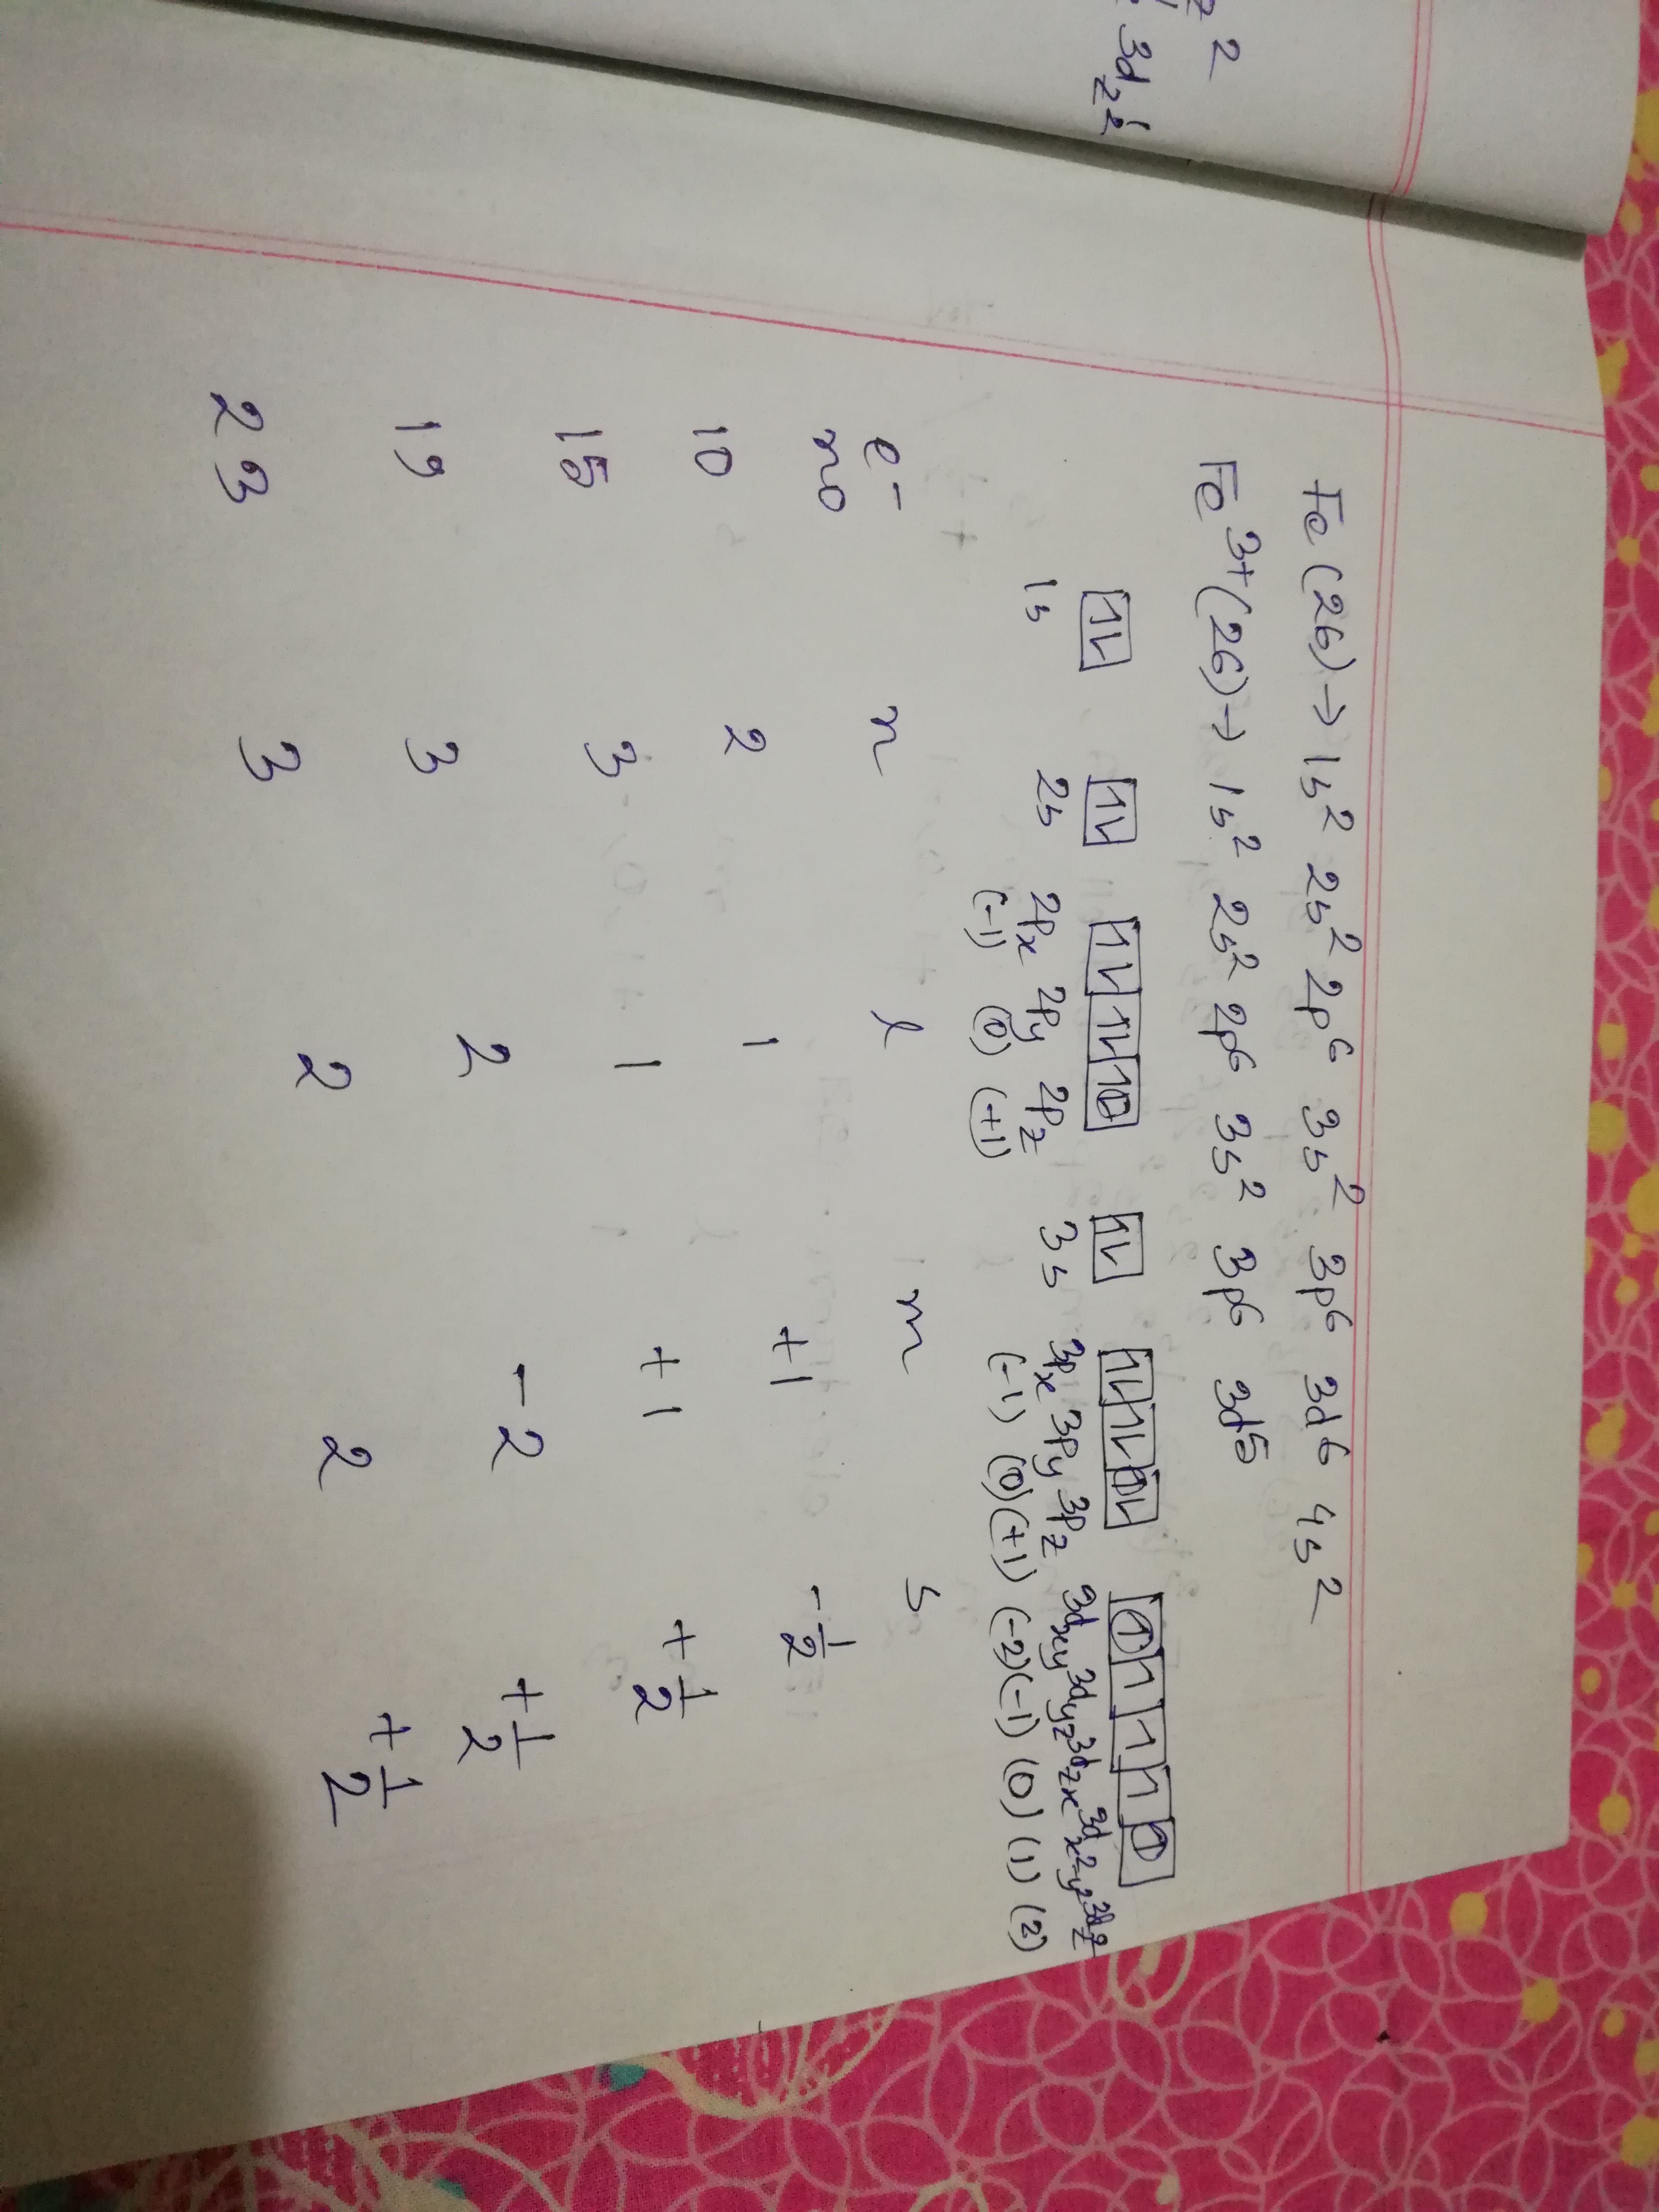 z 2
3d z2
Fe (26) → 1s² 2s² 2p⁶ 3s² 3p⁶ 3d⁶ 4s²
Fe³⁺(26) → 1s² 2s² 2p⁶ 3s² 3p⁶ 3d⁵
1L 1L 1L 1L 1L 1L 1L 1L 1L 1 1 1 1 1
1s 2s 2px 2py 2pz 3s 3px 3py 3pz 3dxy 3dyz 3dzx 3dx²-y² 3dz²
(-1) (0) (+1) (-1) (0) (+1) (-2) (-1) (0) (1) (2)
e⁻ no n l m s
10 2 1 +1 -1/2
15 3 1 +1 +1/2
19 3 2 -2 +1/2
23 3 2 2 +1/2